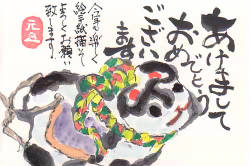 あけまして
おめでとう
ござい
ます
今年も楽しく
絵手紙描いて
よろしくお願い
致します。
元旦